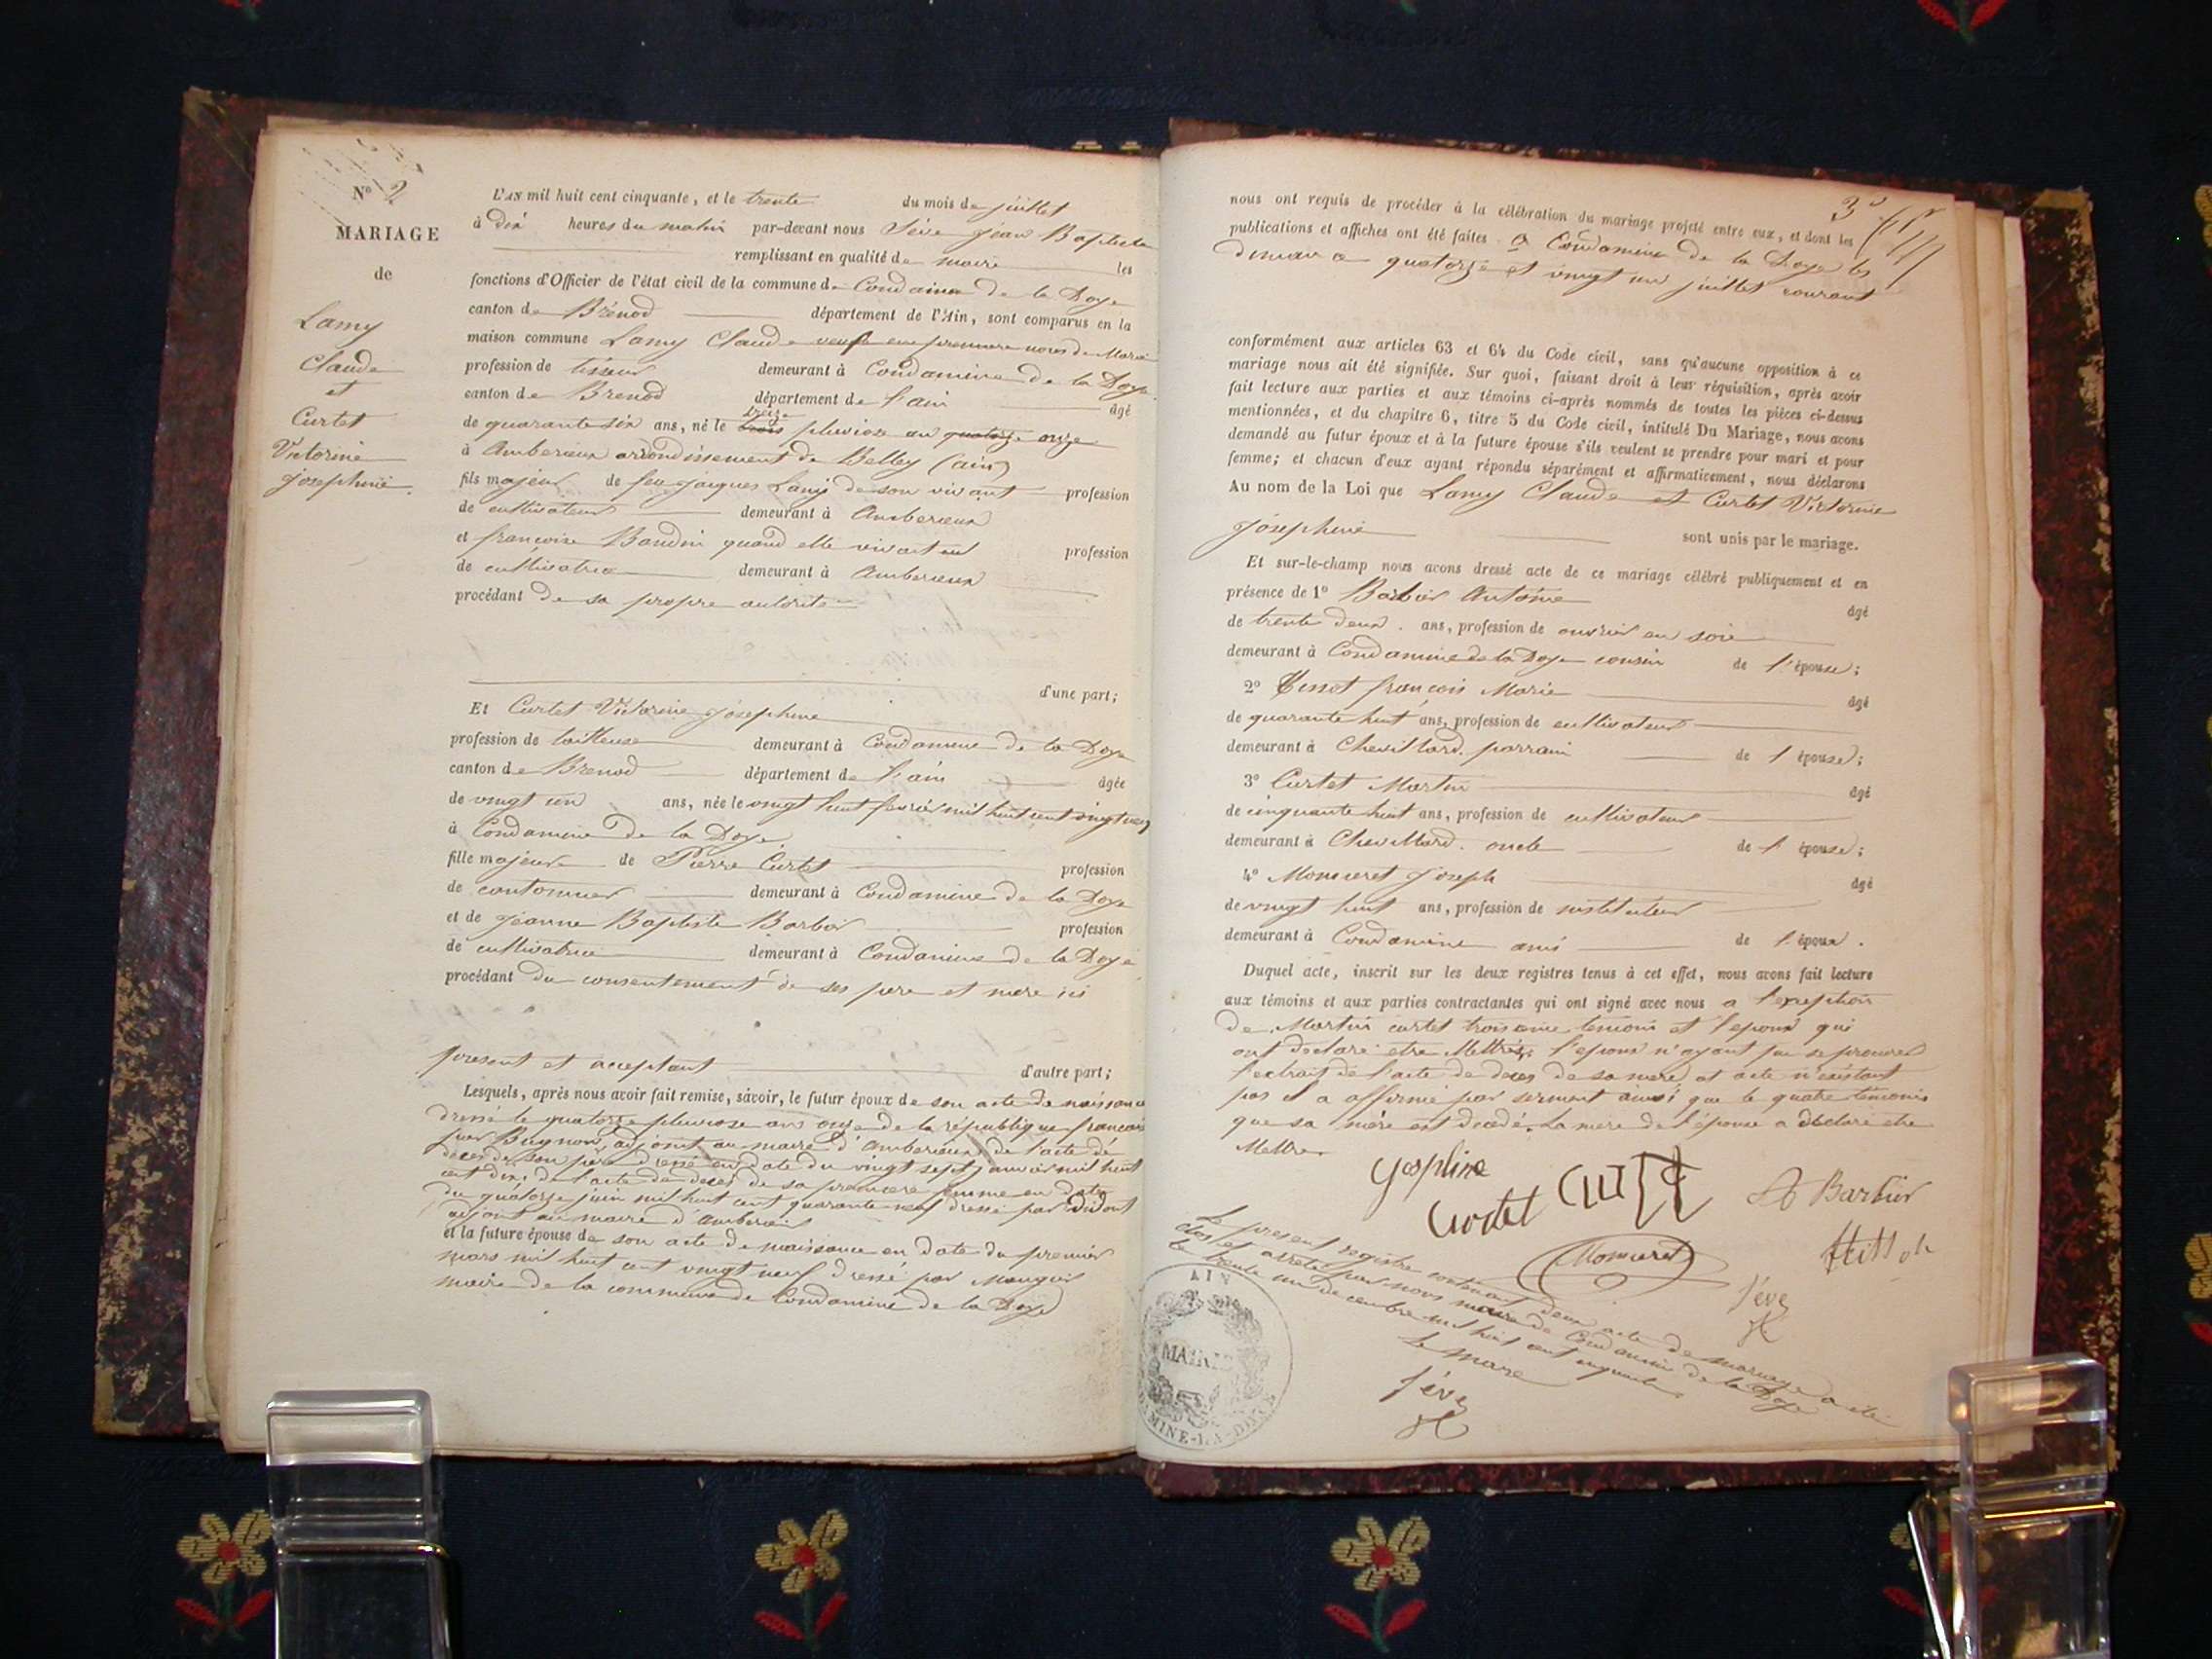 Nº 2
MARIAGE
de
Lamy
Claude
et
Curtet
Victorine
Josephine
L'AN mil huit cent cinquante, et le trente du mois de juillet
à dix heures du matin par-devant nous Sève Jean Baptiste
remplissant en qualité de maire les
fonctions d'Officier de l'état civil de la commune de Condamine de la Doye
canton de Brénod département de l'Ain, sont comparus en la
maison commune Lamy Claude veuf en premiere noces de Marie
profession de tisseur demeurant à Condamine de la Doye
canton de Brenod département de l'ain âgé
de quarante six ans, né le treize pluviose an quatorze onze
à Amberieux arrondissement de Belley (ain)
fils majeur de feu Jacques Lamy de son vivant profession
de cultivateur demeurant à Amberieux
et françoise Baudin quand elle vivait profession
de cultivatrice demeurant à Amberieux
procédant de sa propre autorité
d'une part;
Et Curtet Victorine Josephine
profession de tailleuse demeurant à Condamine de la Doye
canton de Brenod département de l'ain âgée
de vingt un ans, née le vingt huit fevrier mil huit cent vingt neuf
à Condamine de la Doye
fille majeure de Pierre Curtet profession
de cantonnier demeurant à Condamine de la Doye
et de Jeanne Baptiste Barbier profession
de cultivatrice demeurant à Condamine de la Doye
procédant du consentement de ses pere et mere ici
present et acceptant d'autre part;
Lesquels, après nous avoir fait remise, savoir, le futur époux de son acte de naissance
dressé le quatorze pluviose an onze de la république francaise
par Bugnon, adjoint au maire d'Amberieux de l'acte de
deces de son père dressé en date du vingt sept janvier mil huit
cent dix, de l'acte de deces de sa premiere femme en date
du quatorze juin mil huit cent quarante neuf dressé par Didont
adjoint au maire d'Amberieux
et la future épouse de son acte de naissance en date du premier
mars mil huit cent vingt neuf dressé par Mougin
maire de la commune de Condamine de la Doye
3
nous ont requis de procéder à la célébration du mariage projeté entre eux, et dont les
publications et affiches ont été faites à Condamine de la Doye les
dimanche quatorze et vingt un juillet courant
conformément aux articles 63 et 64 du Code civil, sans qu'aucune opposition à ce
mariage nous ait été signifiée. Sur quoi, faisant droit à leur réquisition, après avoir
fait lecture aux parties et aux témoins ci-après nommés de toutes les pièces ci-dessus
mentionnées, et du chapitre 6, titre 5 du Code civil, intitulé Du Mariage, nous avons
demandé au futur époux et à la future épouse s'ils veulent se prendre pour mari et pour
femme; et chacun d'eux ayant répondu séparément et affirmativement, nous déclarons
Au nom de la Loi que Lamy Claude et Curtet Victorine
Josephine sont unis par le mariage.
Et sur-le-champ nous avons dressé acte de ce mariage célébré publiquement et en
présence de 1º Barbier Antoine âgé
de trente deux ans, profession de ouvrier en soie
demeurant à Condamine de la Doye cousin de l'épouse;
2º Tissot françois Marie âgé
de quarante huit ans, profession de cultivateur
demeurant à Chevillard. parrain de l'épouse;
3º Curtet Martin âgé
de cinquante huit ans, profession de cultivateur
demeurant à Chevillard. oncle de l'épouse;
4º Monneret Joseph âgé
de vingt huit ans, profession de instituteur
demeurant à Condamine ami de l'époux.
Duquel acte, inscrit sur les deux registres tenus à cet effet, nous avons fait lecture
aux témoins et aux parties contractantes qui ont signé avec nous a l'exception
de Martin curtet troisieme temoin et l'epoux qui
ont declaré etre illettrés. l'epoux n'ayant pu se procurer
l'extrait de l'acte de deces de sa mere cet acte n'existant
pas il a affirmé par serment ainsi que le quatre temoins
que sa mère est decedé. La mere de l'épouse a déclaré etre
illettrée
Josphine
Curtet
A Barbier
Monneret
tissot
Sève
Le present registre contenant deux acte de mariage a eté
clos et arreté par nous maire de Condamine de la Doye
le trente un decembre mil huit cent cinquante
Le maire
Sève
AIN
MAIRIE
CONDAMINE-LA-DOYE